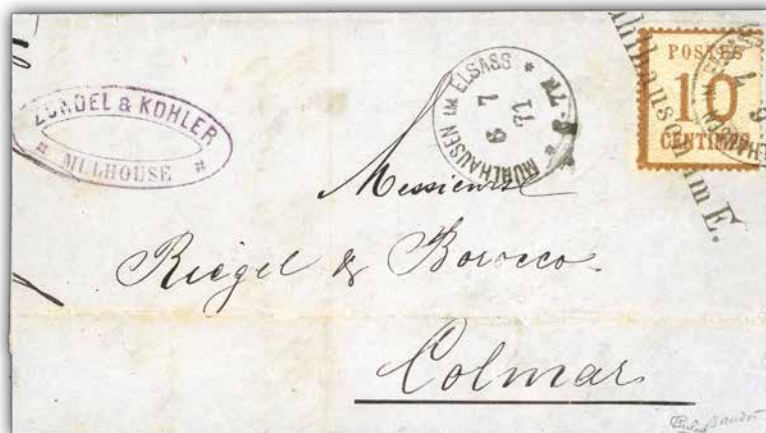 ZÜNDEL & KOHLER
MULHOUSE
MÜHLHAUSEN IM ELSASS
6 7
71
POSTES
10
CENTIMES
Mühlhausen im E.
Messieurs
Riegel & Borocco
Colmar